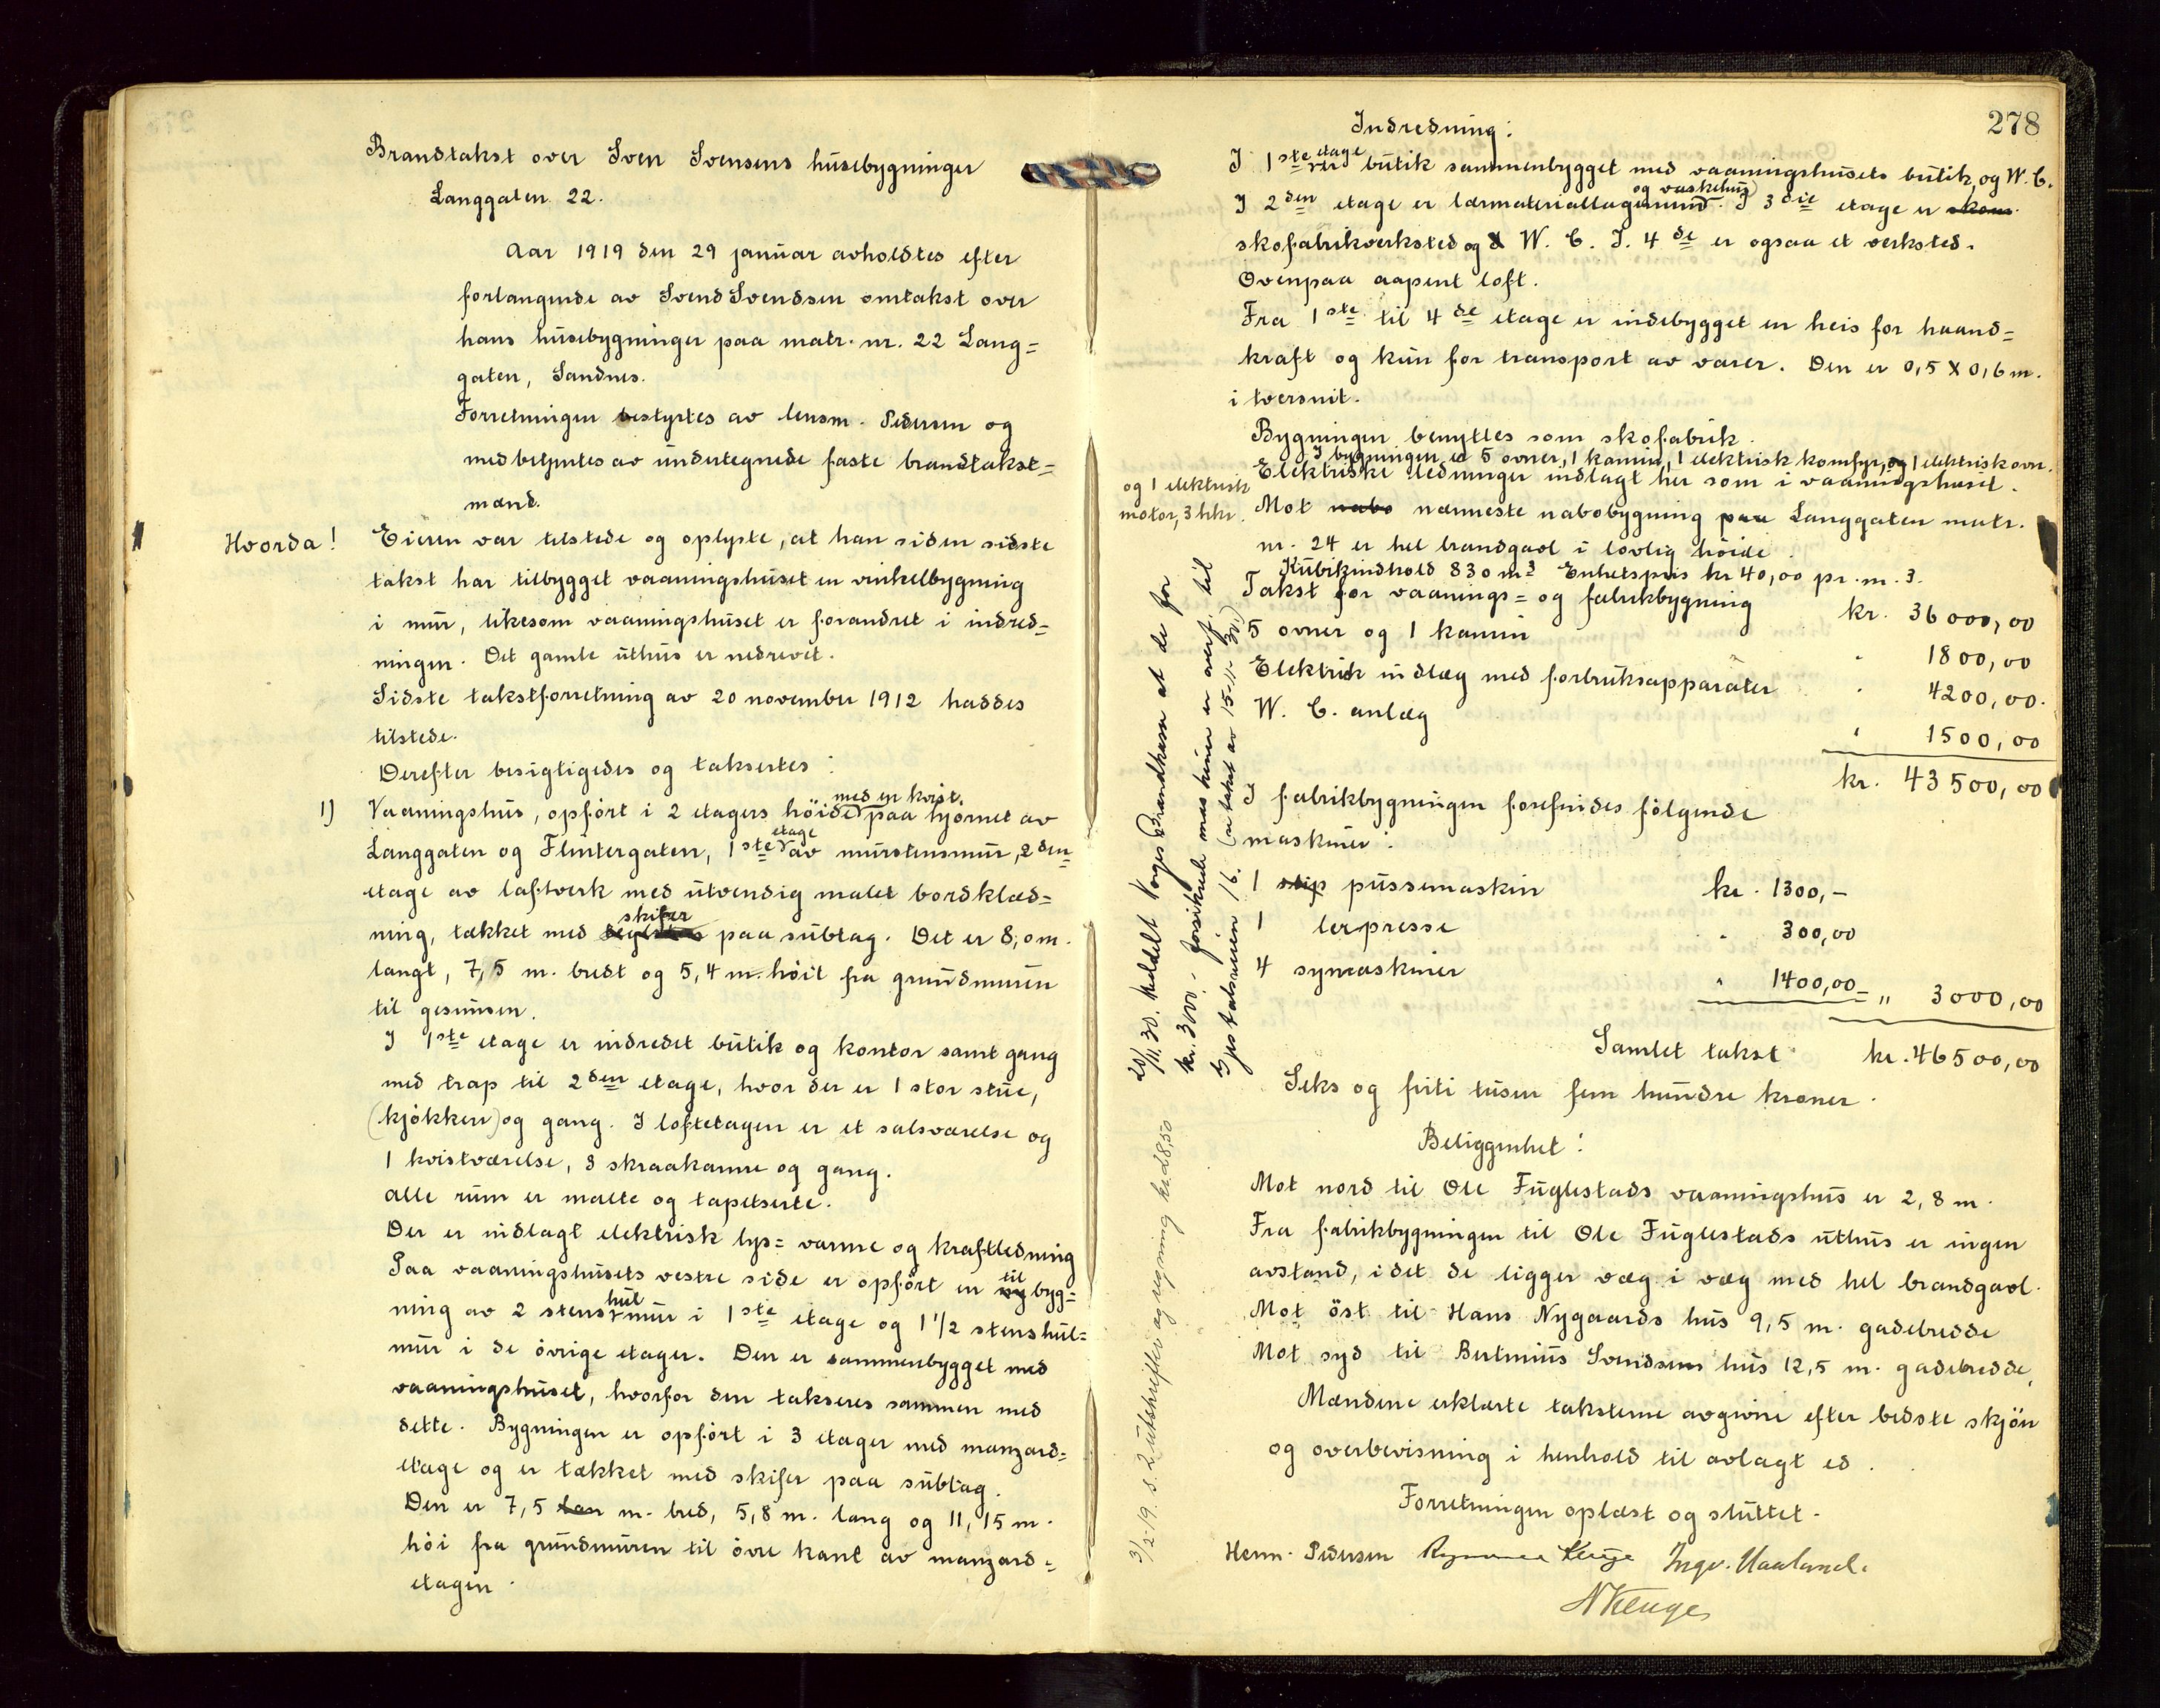 Brandtakst over Sven Svensens husebygninger
Langgaten 22.
Aar 1919 den 29 januar avholdtes efter
forlangende av Svend Svendsen omtakst over
hans husebygninger paa matr. nr. 22 Lang=
gaten, Sandnes.
Forretningen bestyrtes av lensm. Pedersen og
medbetjentes av undertegnede faste brandtakst=
mænd.
Hvorda!
Eieren var tilstede og oplyste, at han siden sidste
takst har tilbygget vaaningshuset en vinkelbygning
i mur, likesom vaaningshuset er forandret i indred=
ningen. Det gamle uthus er nedrevet.
Sidste takstforretning av 20 november 1912 haddes
tilstede.
Derefter besigtigedes og taksertes:
med en kvist.
1) Vaaningshus, opført i 2 etagers høide paa hjørnet av
etage
Langgaten og Flintergaten, 1ste av murstensmur, 2den
etage av laftverk med utvendig malet bordklæd=
skifer
ning, tækket med paa subtag. Det er 8,0 m.
langt, 7,5 m. bredt og 5,4 m. høit fra grundmuren
til gesimsen.
I 1ste etage er indredet butik og kontor samt gang
med trap til 2den etage, hvor der er 1 stor stue,
(kjøkken) og gang. I loftetagen er et salsværelse og
1 kvistværelse, 3 skraakamre og gang.
Alle rum er malte og tapetserte.
Der er indlagt elektrisk lys= varme og kraftledning
til
Paa vaaningshusets vestre side er opført en ny byg=
hul
ning av 2 stens mur i 1ste etage og 1 1/2 stens hul=
mur i de øvrige etager. Den er sammenbygget med
vaaningshuset, hvorfor den takseres sammen med
dette. Bygningen er opført i 3 etager med manzard=
etage og er tækket med skifer paa subtag.
Den er 7,5 lan m. bred, 5,8 m. lang og 11,15 m.
høi fra grundmuren til øvre kant av manzard=
etagen.
278
Indredning:
etage
I 1ste er butik sammenbygget med vaaningshusets butik, og W.C.
og vaskehus
I 2den etage er lærmateriallagerrum. I 3die etage er skom
skofabrikverksted og W. C. I. 4de er ogsaa et verksted.
Ovenpaa aapent loft.
Fra 1ste til 4de etage er indebygget en heis for haand=
kraft og kun for transport av varer. Den er 0,5 X 0,6 m.
i tversnit.
Bygningen benyttes som skofabrik.
I bygningen er 5 ovner, 1 kamin, 1 elektrisk komfyr, og 1 elektrisk ovn.
og 1 elektrisk
motor, 3 hkr.
Elektriske ledninger indlagt her som i vaaningshuset.
Mot nabo nærmeste nabobygning paa Langgaten matr.
nr. 24 er hel brandgavl i lovlig høide.
Kubikindhold 830 m3 Enhetspris kr 40,00 pr. m. 3.
Takst for vaanings= og fabrikbygning kr. 36000,00
5 ovner og 1 kamin " 1800,00
Elektrisk indlæg med forbruksapparater " 4200,00.
W. C. anlæg " 1500,00
kr. 43500,00
I fabrikbygningen forefindes følgende
maskiner:
1 slip pussemaskin kr. 1300,-
1 lerpresse " 300,00
4 symaskiner " 1400,00= " 3000,00
Samlet takst kr. 46500,00
Seks og firti tusen fem hundre kroner.
Beliggenhet:
Mot nord til Ole Fuglestads vaaningshus er 2,8 m.
Fra fabrikbygningen til Ole Fuglestads uthus er ingen
avstand, i det de ligger væg i væg med hel brandgavl.
Mot öst til Hans Nygaards hus 9,5 m. gadebredde
Mot syd til Bertinius Svendsens hus 12,5 m. gadebredde,
Mændene erklærte taksterne avgivne efter bedste skjön
og overbevisning i henhold til avlagt ed.
Forretningen oplæst og sluttet.
Henn. Pedersen Kluge Ingv. Haaland.
N Kluge
20/11 30. Meddelt Norges Brandkasse at de for
kr. 3000,- forsikrede maskiner er overf. til
Gjesdalsveien 16. (se takst av 15-11-30)
3/2-19. s. 2 utskrifter og regning kr. 28,50